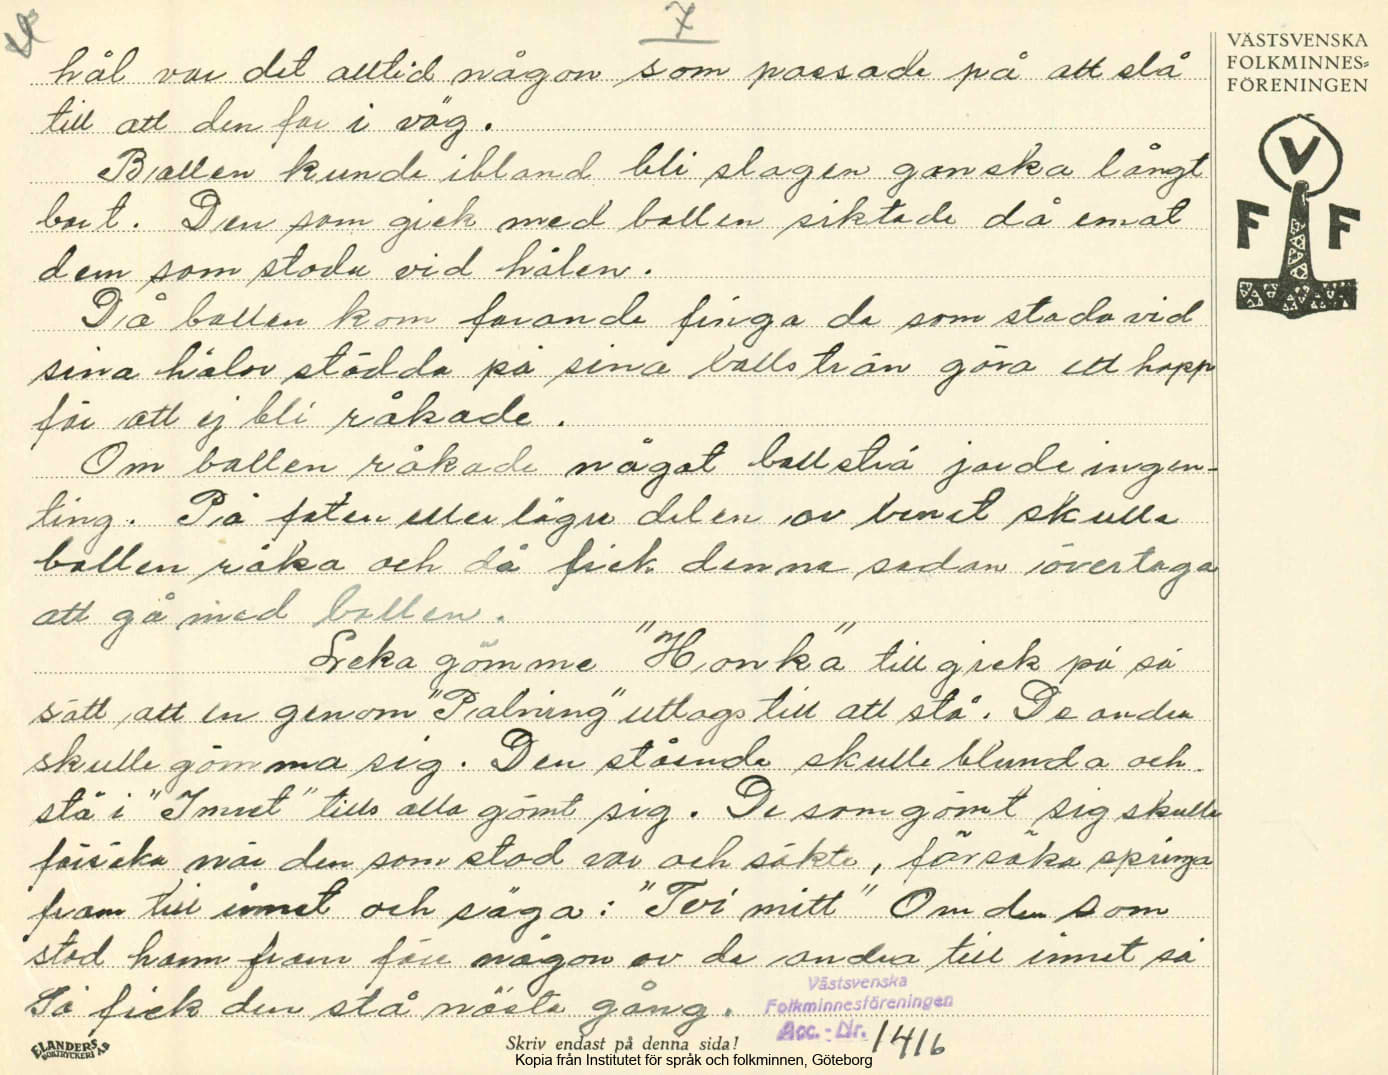 7
VÄSTSVENSKA
FOLKMINNES-
FÖRENINGEN
V
F F
hål var det alltid någon som passade på att slå
till att den for i väg.
Ballen kunde ibland bli slagen ganska långt
bort. Den som gick med ballen siktade då emot
dem som stode vid hålen.
Då ballen kom farande finga de som stode vid
sina hålor stödda på sina ballsträn göra ett hopp
för att ej bli råkade.
Om ballen råkade något ballsträ jorde ingen-
ting. På foten eller lägre delen av benet skulle
ballen råka och då fick denne sedan övertaga
att gå med ballen.
Leka gömme "Honka" till gick på så
sätt att en genom "Palning" uttogs till att stå. De andra
skulle gömma sig. Den stående skulle blunda och
stå i "Innet" tills alla gömt sig. De som gömt sig skulle
försöka när den som stod var och sökte, försöka springa
fram till innet och säga: "Tvi mitt" Om den som
stod hann fram före någon av de andra till innet så
Så fick den stå nästa gång.
Västsvenska
Folkminnesföreningen
Acc.-Nr. 1416
ELANDERS
BOKTRYCKERI AB
Skriv endast på denna sida!
Kopia från Institutet för språk och folkminnen, Göteborg